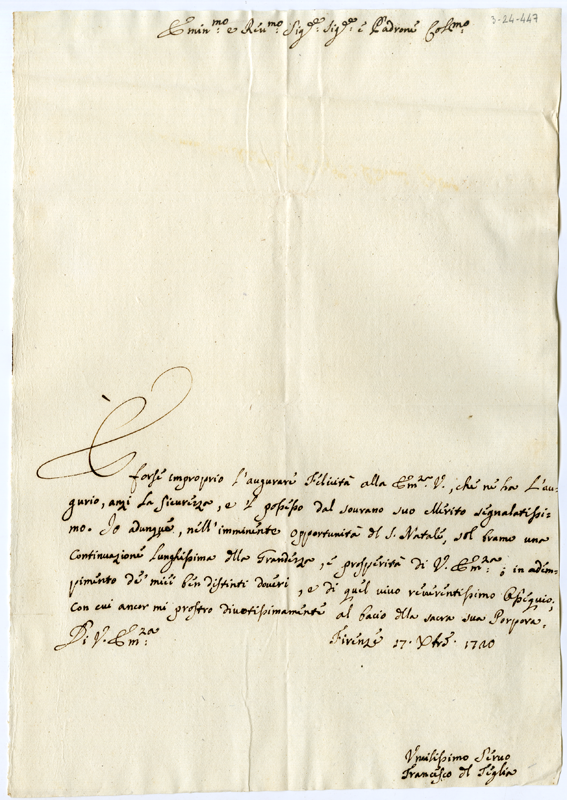 3-24-447
Emin.mo e Reu.mo Sig.re Sig.re e Padrone Col.mo
È forse improprio l'augurare Felicità alla Em.za V., che ne ha L'au-
gurio, anzi La Sicurezza, e 'l possesso dal sourano suo Merito segnalatissi-
mo. Io adunque, nell'imminente opportunità del S. Natale, sol bramo una
Continuazione Lunghissima della Grandezza, e prosperità di V. Em.za; in adem-
pimento de' miei ben distinti doueri, e di quel viuo reuerentissimo Ossequio,
con cui ancor mi prostro diuotissimamente al bacio della sacra sua Porpora.
Di V. Em.za Firenze 17. Xbre. 1720
Vmilissimo Seruo
Francesco del Teglia